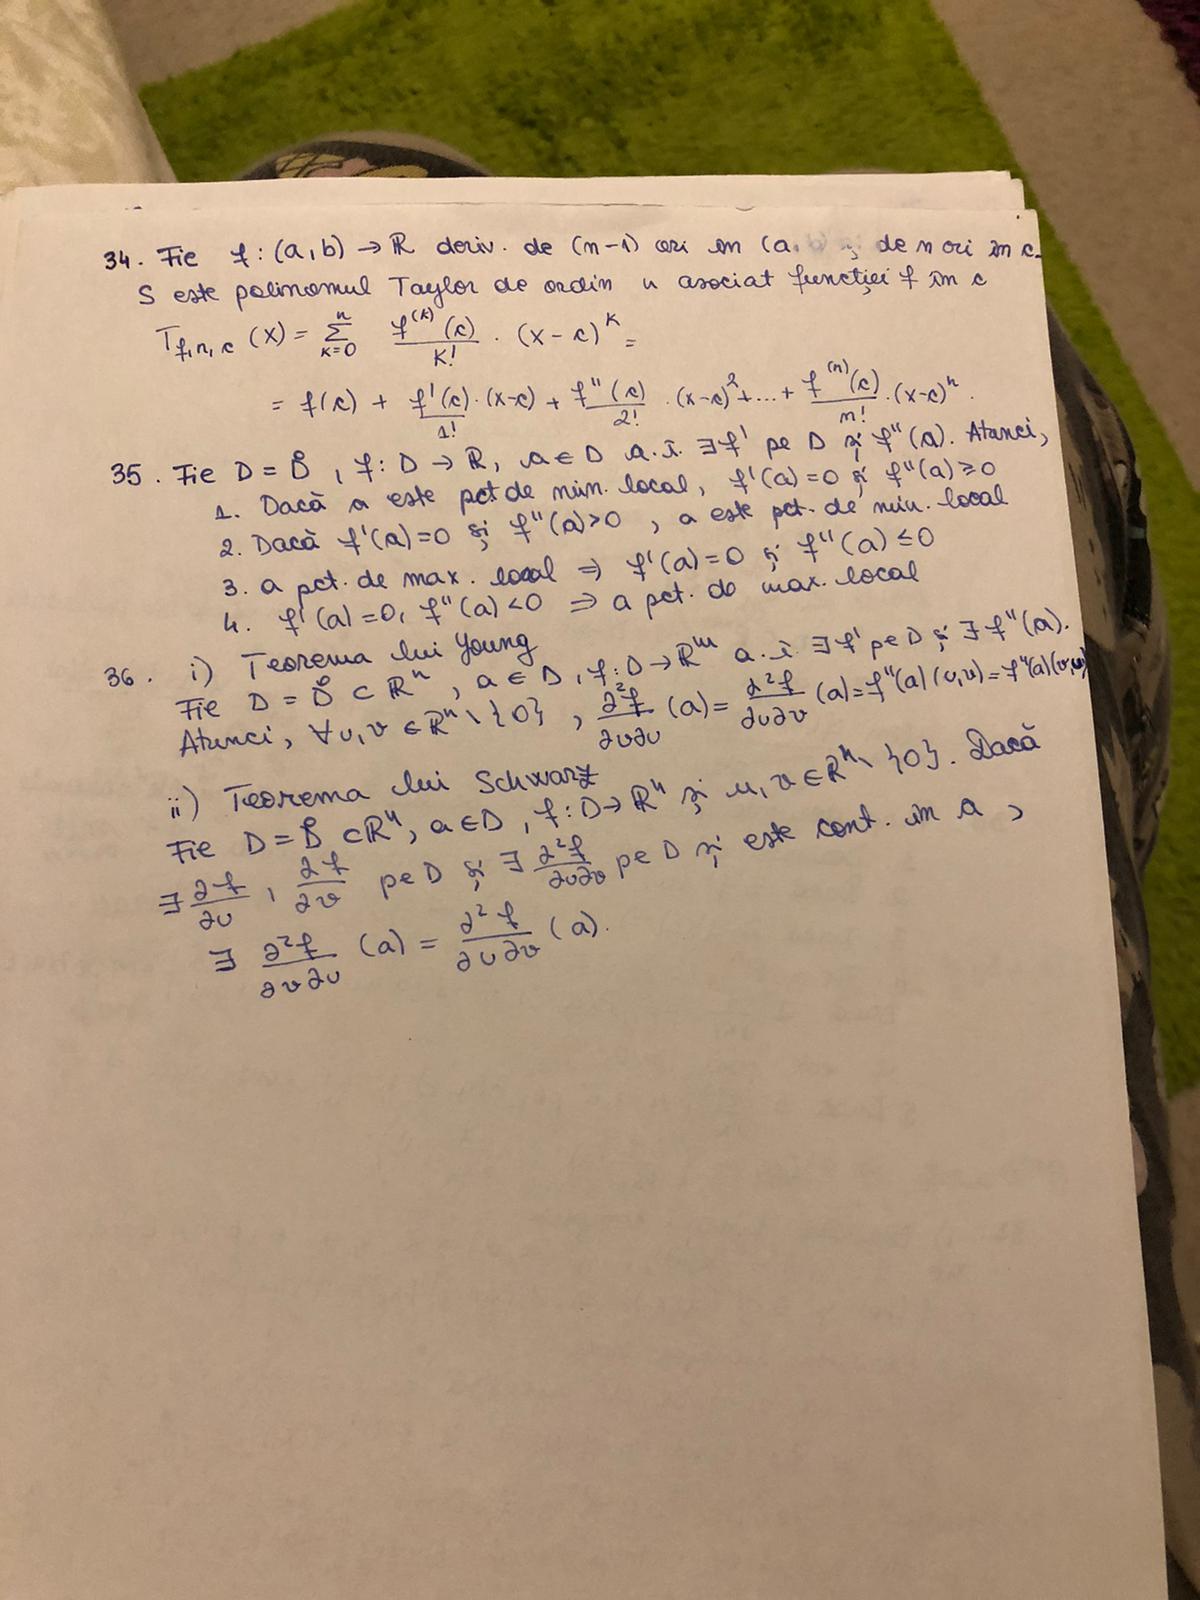 34. Fie f : (a, b) → ℝ deriv. de (n-1) ori în (a, b) și de n ori în c.
S este polinomul Taylor de ordin n asociat funcției f în c
T_{f,n,c} (x) = Σ_{k=0}^{n} f^{(k)}(c)/k! · (x-c)^k =
= f(c) + f'(c)/1! · (x-c) + f''(c)/2! · (x-c)^2 + ... + f^{(n)}(c)/n! · (x-c)^n.
35. Fie D = D̊, f : D → ℝ, a ∈ D a.î. ∃ f' pe D și f''(a). Atunci,
1. Dacă a este pct de min. local, f'(a) = 0 și f''(a) ≥ 0
2. Dacă f'(a) = 0 și f''(a) > 0, a este pct. de min. local
3. a pct. de max. local ⇒ f'(a) = 0 și f''(a) ≤ 0
4. f'(a) = 0, f''(a) < 0 ⇒ a pct. de max. local
36. i) Teorema lui Young
Fie D = D̊ ⊂ ℝ^n, a ∈ D, f : D → ℝ^m a.î. ∃ f' pe D și ∃ f''(a).
Atunci, ∀ u, v ∈ ℝ^n \ {0}, ∂²f/∂v∂u (a) = ∂²f/∂u∂v (a) = f''(a)(u,v) = f''(a)(v,u)
ii) Teorema lui Schwarz
Fie D = D̊ ⊂ ℝ^n, a ∈ D, f : D → ℝ^n și u, v ∈ ℝ^n \ {0}. Dacă
∃ ∂f/∂u, ∂f/∂v pe D și ∃ ∂²f/∂u∂v pe D și este cont. în a,
∃ ∂²f/∂v∂u (a) = ∂²f/∂u∂v (a).